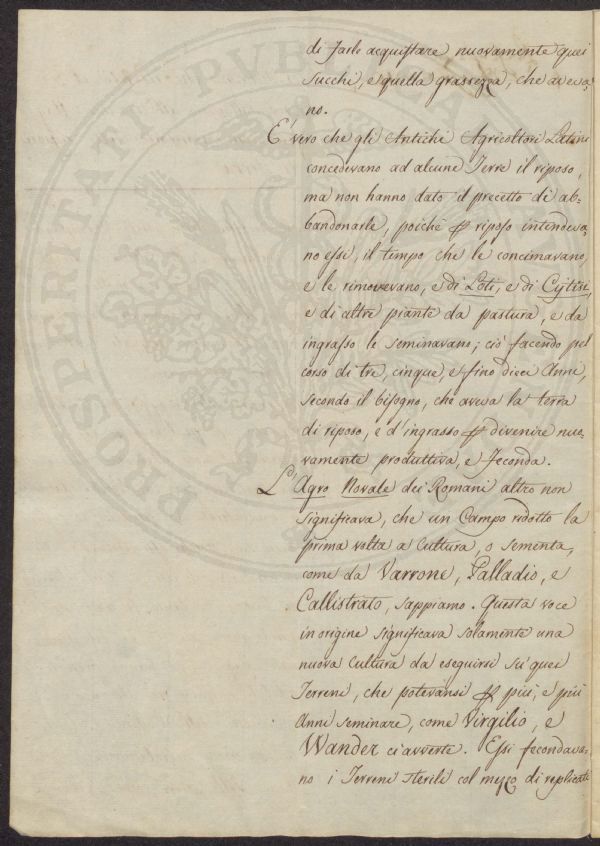 di farle acquistare nuovamente quei
succhi, e quella grassezza, che aveva,
no.
E' vero che gli Antichi Agricoltori Latini
concedevano ad alcune Terre il riposo,
ma non hanno dato il precetto di ab=
bandonarle, poichè p riposo intendeva,
no essi, il tempo che le concimavano,
e le rimovevano, e di Loti, e di Cytisi,
e di altre piante da pastura, e da
ingrasso le seminavano; ciò facendo pel
corso di tre, cinque, e fino dieci Anni,
secondo il bisogno, che aveva la terra
di riposo, e d'ingrasso p divenire nuo,
vamente produttiva, e feconda.
L'Agro Novale dei Romani altro non
significava, che un Campo ridotto la
prima volta a Cultura, o sementa,
come da Varrone, Palladio, e
Callistrato, sappiamo. Questa voce
in origine significava solamente una
nuova Cultura da eseguirsi su quei
Terreni, che potevansi p più, e più
Anni seminare, come Virgilio, e
Wander ci avverte. Essi fecondava,
no i Terreni sterili col mezzo di replicate
PROSPERITATI PVBLICAE